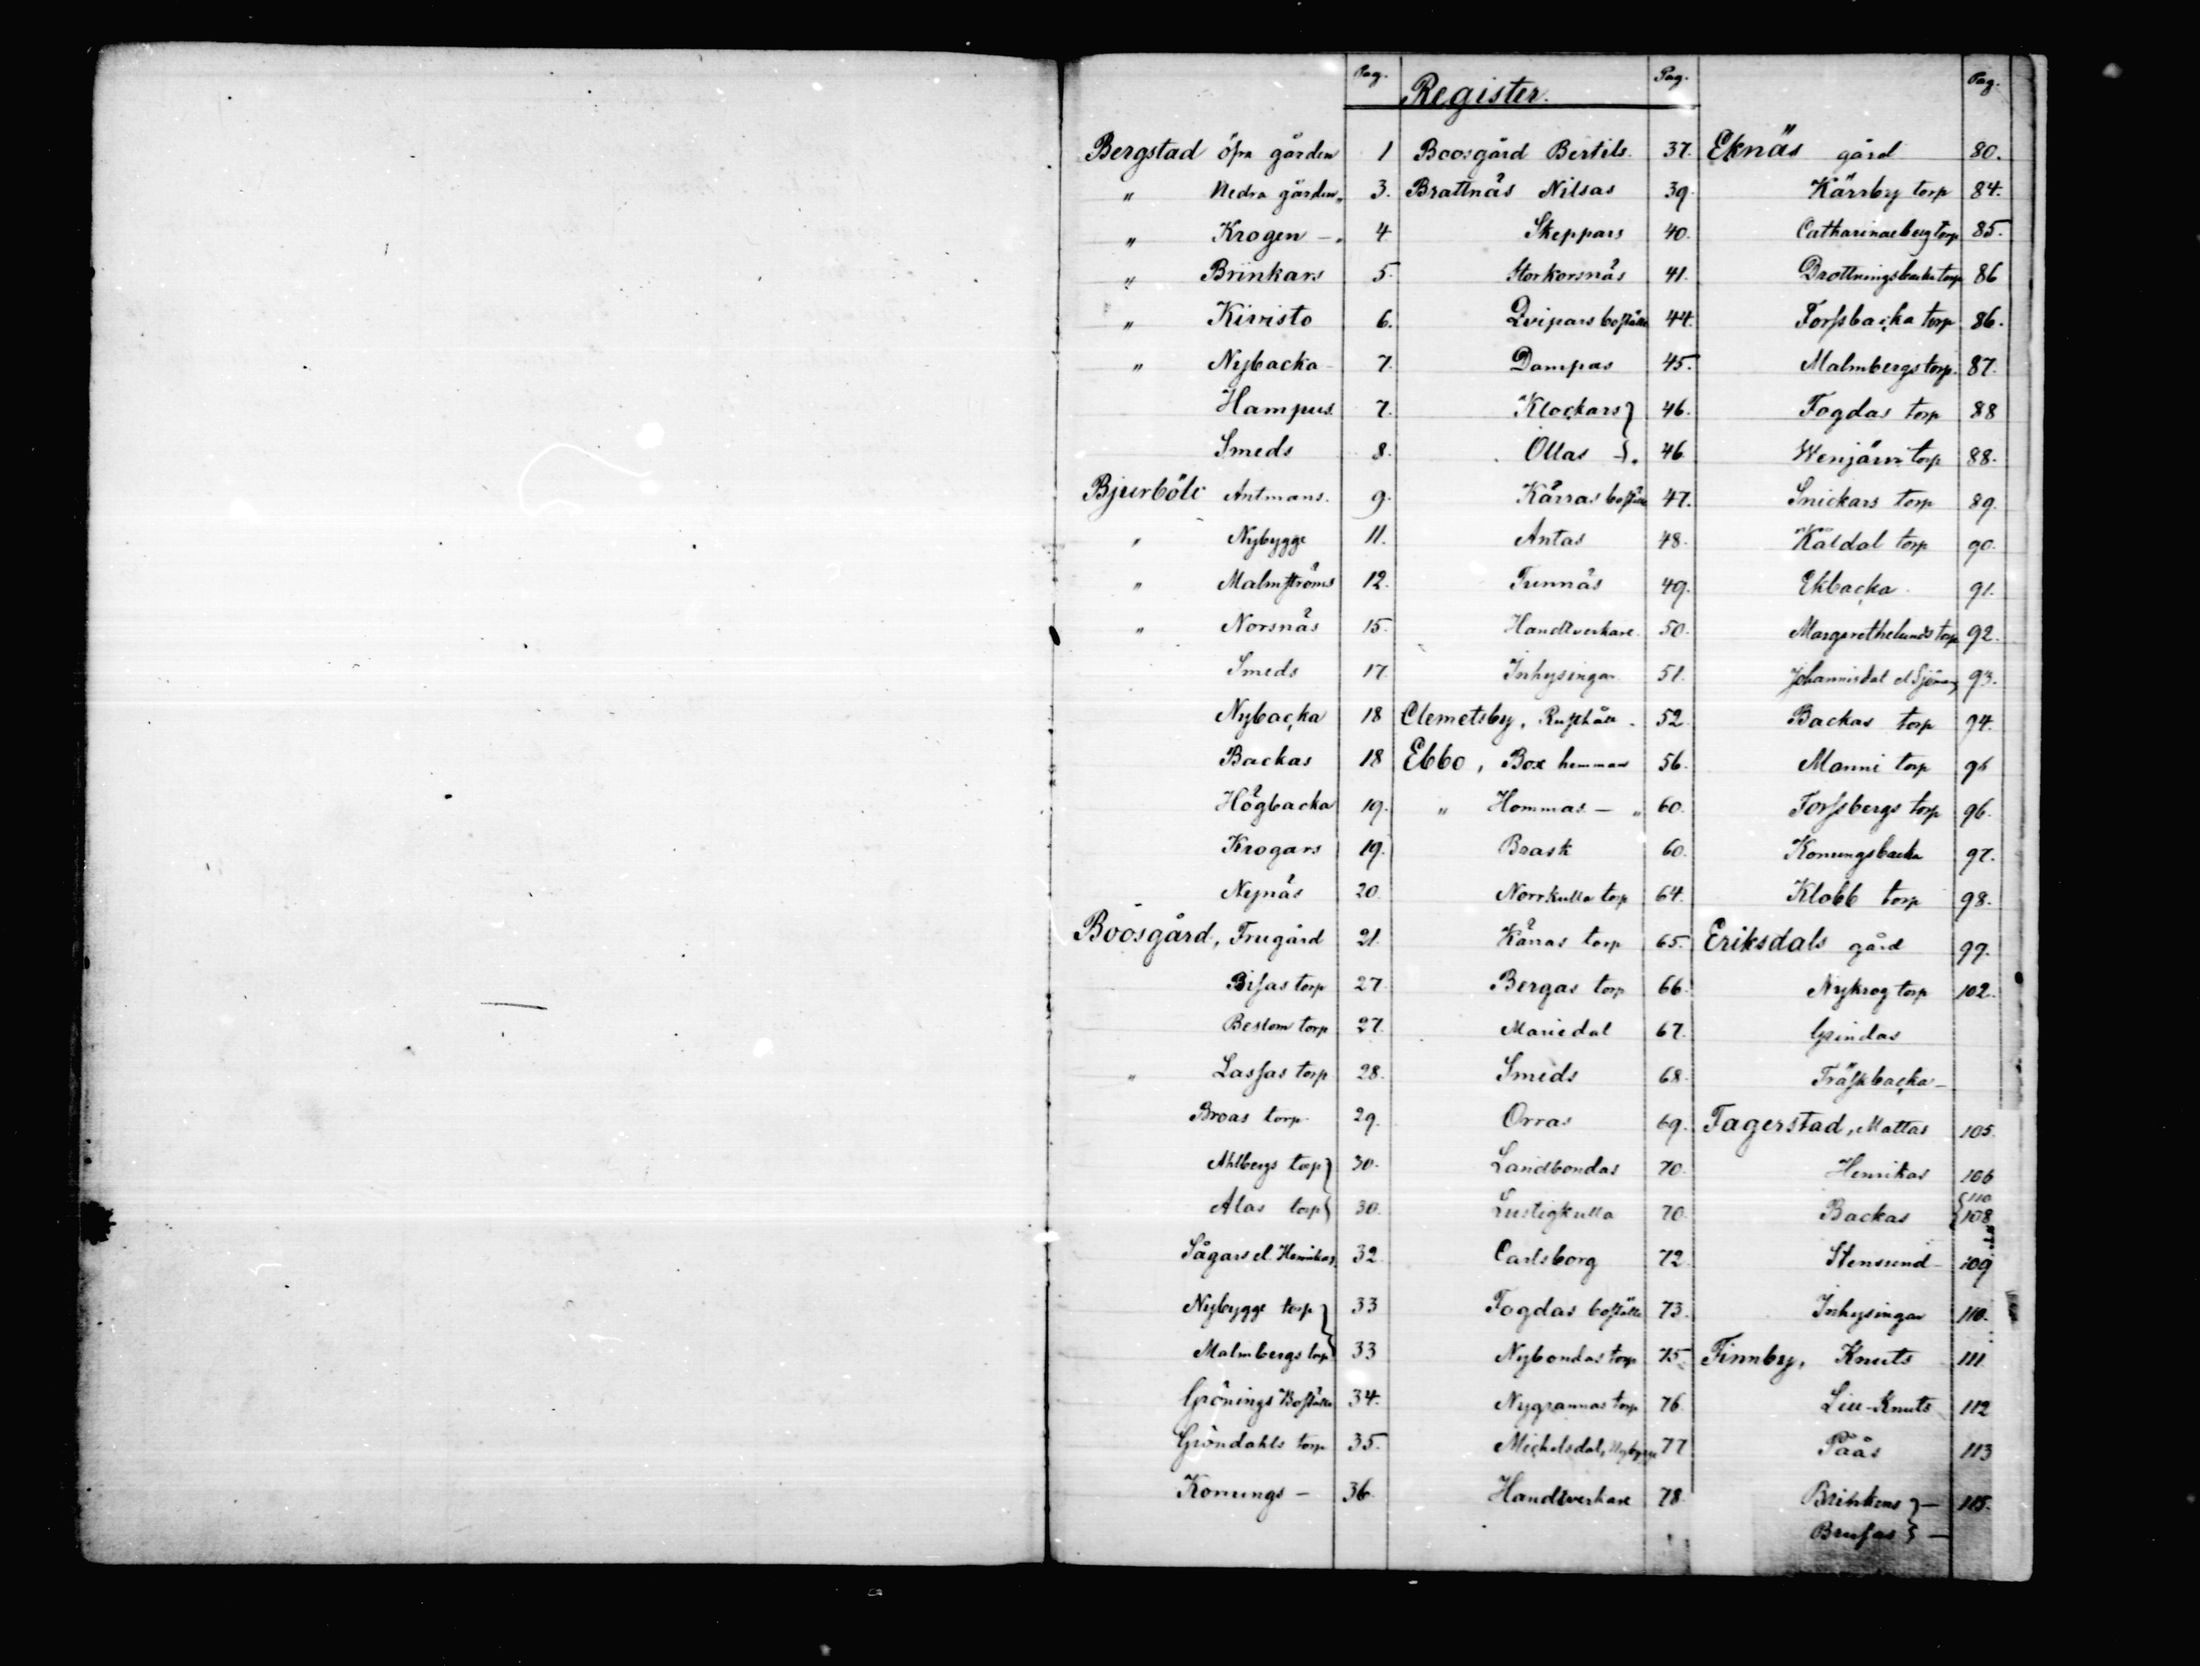 Register.
Pag.
Bergstad öfra gården 1
" Nedra gården " 3.
" Krogen – " 4
" Brinkars 5.
" Kivisto 6.
" Nybacka 7.
Hampus 7.
Smeds 8.
Bjurböle Antmans. 9.
" Nybygge 11.
" Malmströms 12.
" Norsnäs 15.
Smeds 17.
Nybacka 18
Backas 18
Högbacka 19.
Krogars 19.
Nynäs 20.
Boosgård, Frugård 21.
Bisas torp 27
Beslom torp 27.
" Lassas torp 28.
Broas torp 29.
Ahlbergs torp } 30.
Alas torp } 30.
Sågars el. Henrikas 32
Nybygge torp } 33
Malmbergs torp } 33
Grönings Boställe 34.
Gröndahls torp 35.
Konungs – 36.
Pag.
Boosgård Bertils. 37.
Brattnäs Nilsas 39.
Skeppars 40.
Storkorsnäs 41.
Qvipars boställe 44.
Dampas 45.
Klockars } 46.
Ollas } " 46.
Kärras boställe 47.
Antas 48.
Tunnäs 49.
Handtverkare 50.
Inhysingar 51.
Clemetsby, Rusthåll 52.
Ebbo, Box hemman 56.
" Hommas – " 60.
Brask 60.
Norrkulla torp 64.
Kärras torp 65.
Bergas torp 66.
Mariedal 67.
Smeds 68.
Orras 69.
Landbondas 70.
Lustigkulla 70.
Carlsborg 72
Fogdas boställe 73.
Nybondas torp 75.
Nygrannas torp 76.
Michelsdal, Nybygge 77
Handtverkare 78.
Pag.
Eknäs gård 80.
Kärrby torp 84.
Catharinaeberg torp 85.
Drottningsbacka torp 86
Forssbacka torp 86.
Malmbergs torp. 87.
Fogdas torp 88
Wenjärvi torp 88.
Snickars torp 89.
Kaldal torp 90.
Ekbacka 91.
Margarethelunds torp 92.
Johannisdal el Sjöman 93.
Backas torp 94.
Manni torp
Forssbergs torp 96.
Konungsbacka 97.
Klobb torp 98.
Eriksdals gård 99.
Nykrog torp 102.
Grindas
Träskbacka –
Fagerstad, Mattas 105.
Henrikas 106
Backas { 110 108
Stensund – 109
Inhysingar 110.
Finnby, Knuts 111
Liu-Knuts 112
Påås 113
Brinkens } – 115.
Brusas } –